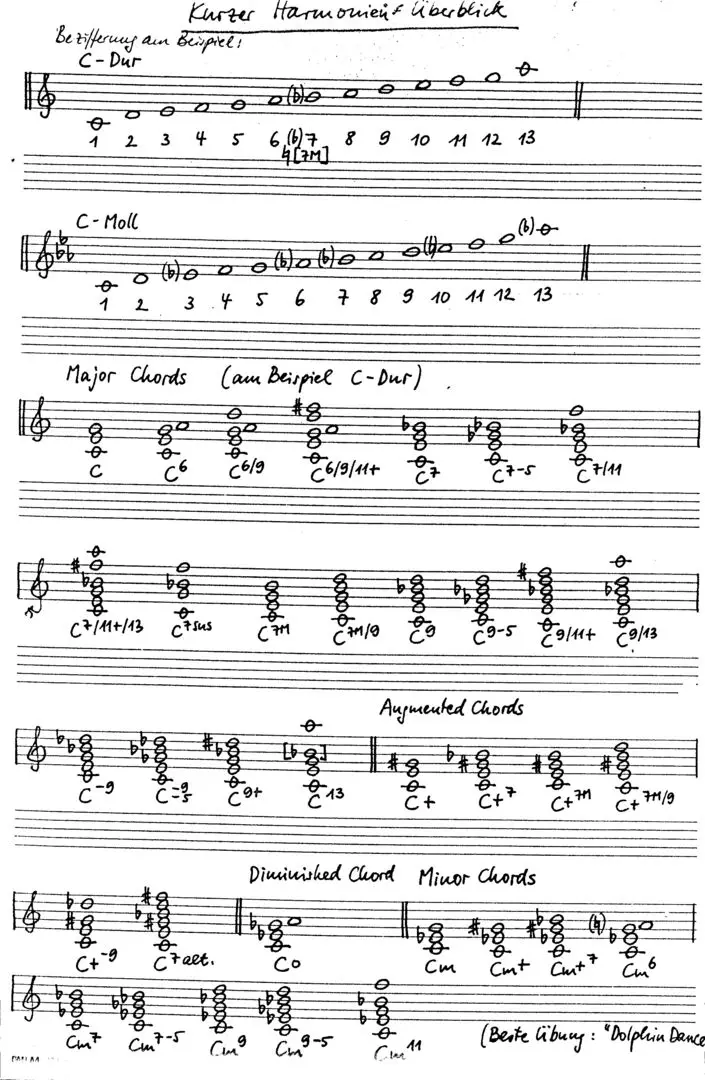 Kurzer Harmonien-Überblick
Bezifferung am Beispiel:
C-Dur
(b)
1 2 3 4 5 6 (b)7 8 9 10 11 12 13
♮[7M]
C-Moll
(b) (b) (b) (b) (b)
1 2 3 4 5 6 7 8 9 10 11 12 13
Major Chords (am Beispiel C-Dur)
C C6 C6/9 C6/9/11+ C7 C7-5 C7/11
C7/11+/13 C7sus C7M C7M/9 C9 C9-5 C9/11+ C9/13
Augmented Chords
[b]
C-9 C-9-5 C9+ C13 C+ C+7 C+7M C+7M/9
Diminished Chord Minor Chords
(♮)
C+-9 C7alt. Co Cm Cm+ Cm+7 Cm6
Cm7 Cm7-5 Cm9 Cm9-5 Cm11 (Beste Übung: "Dolphin Dance